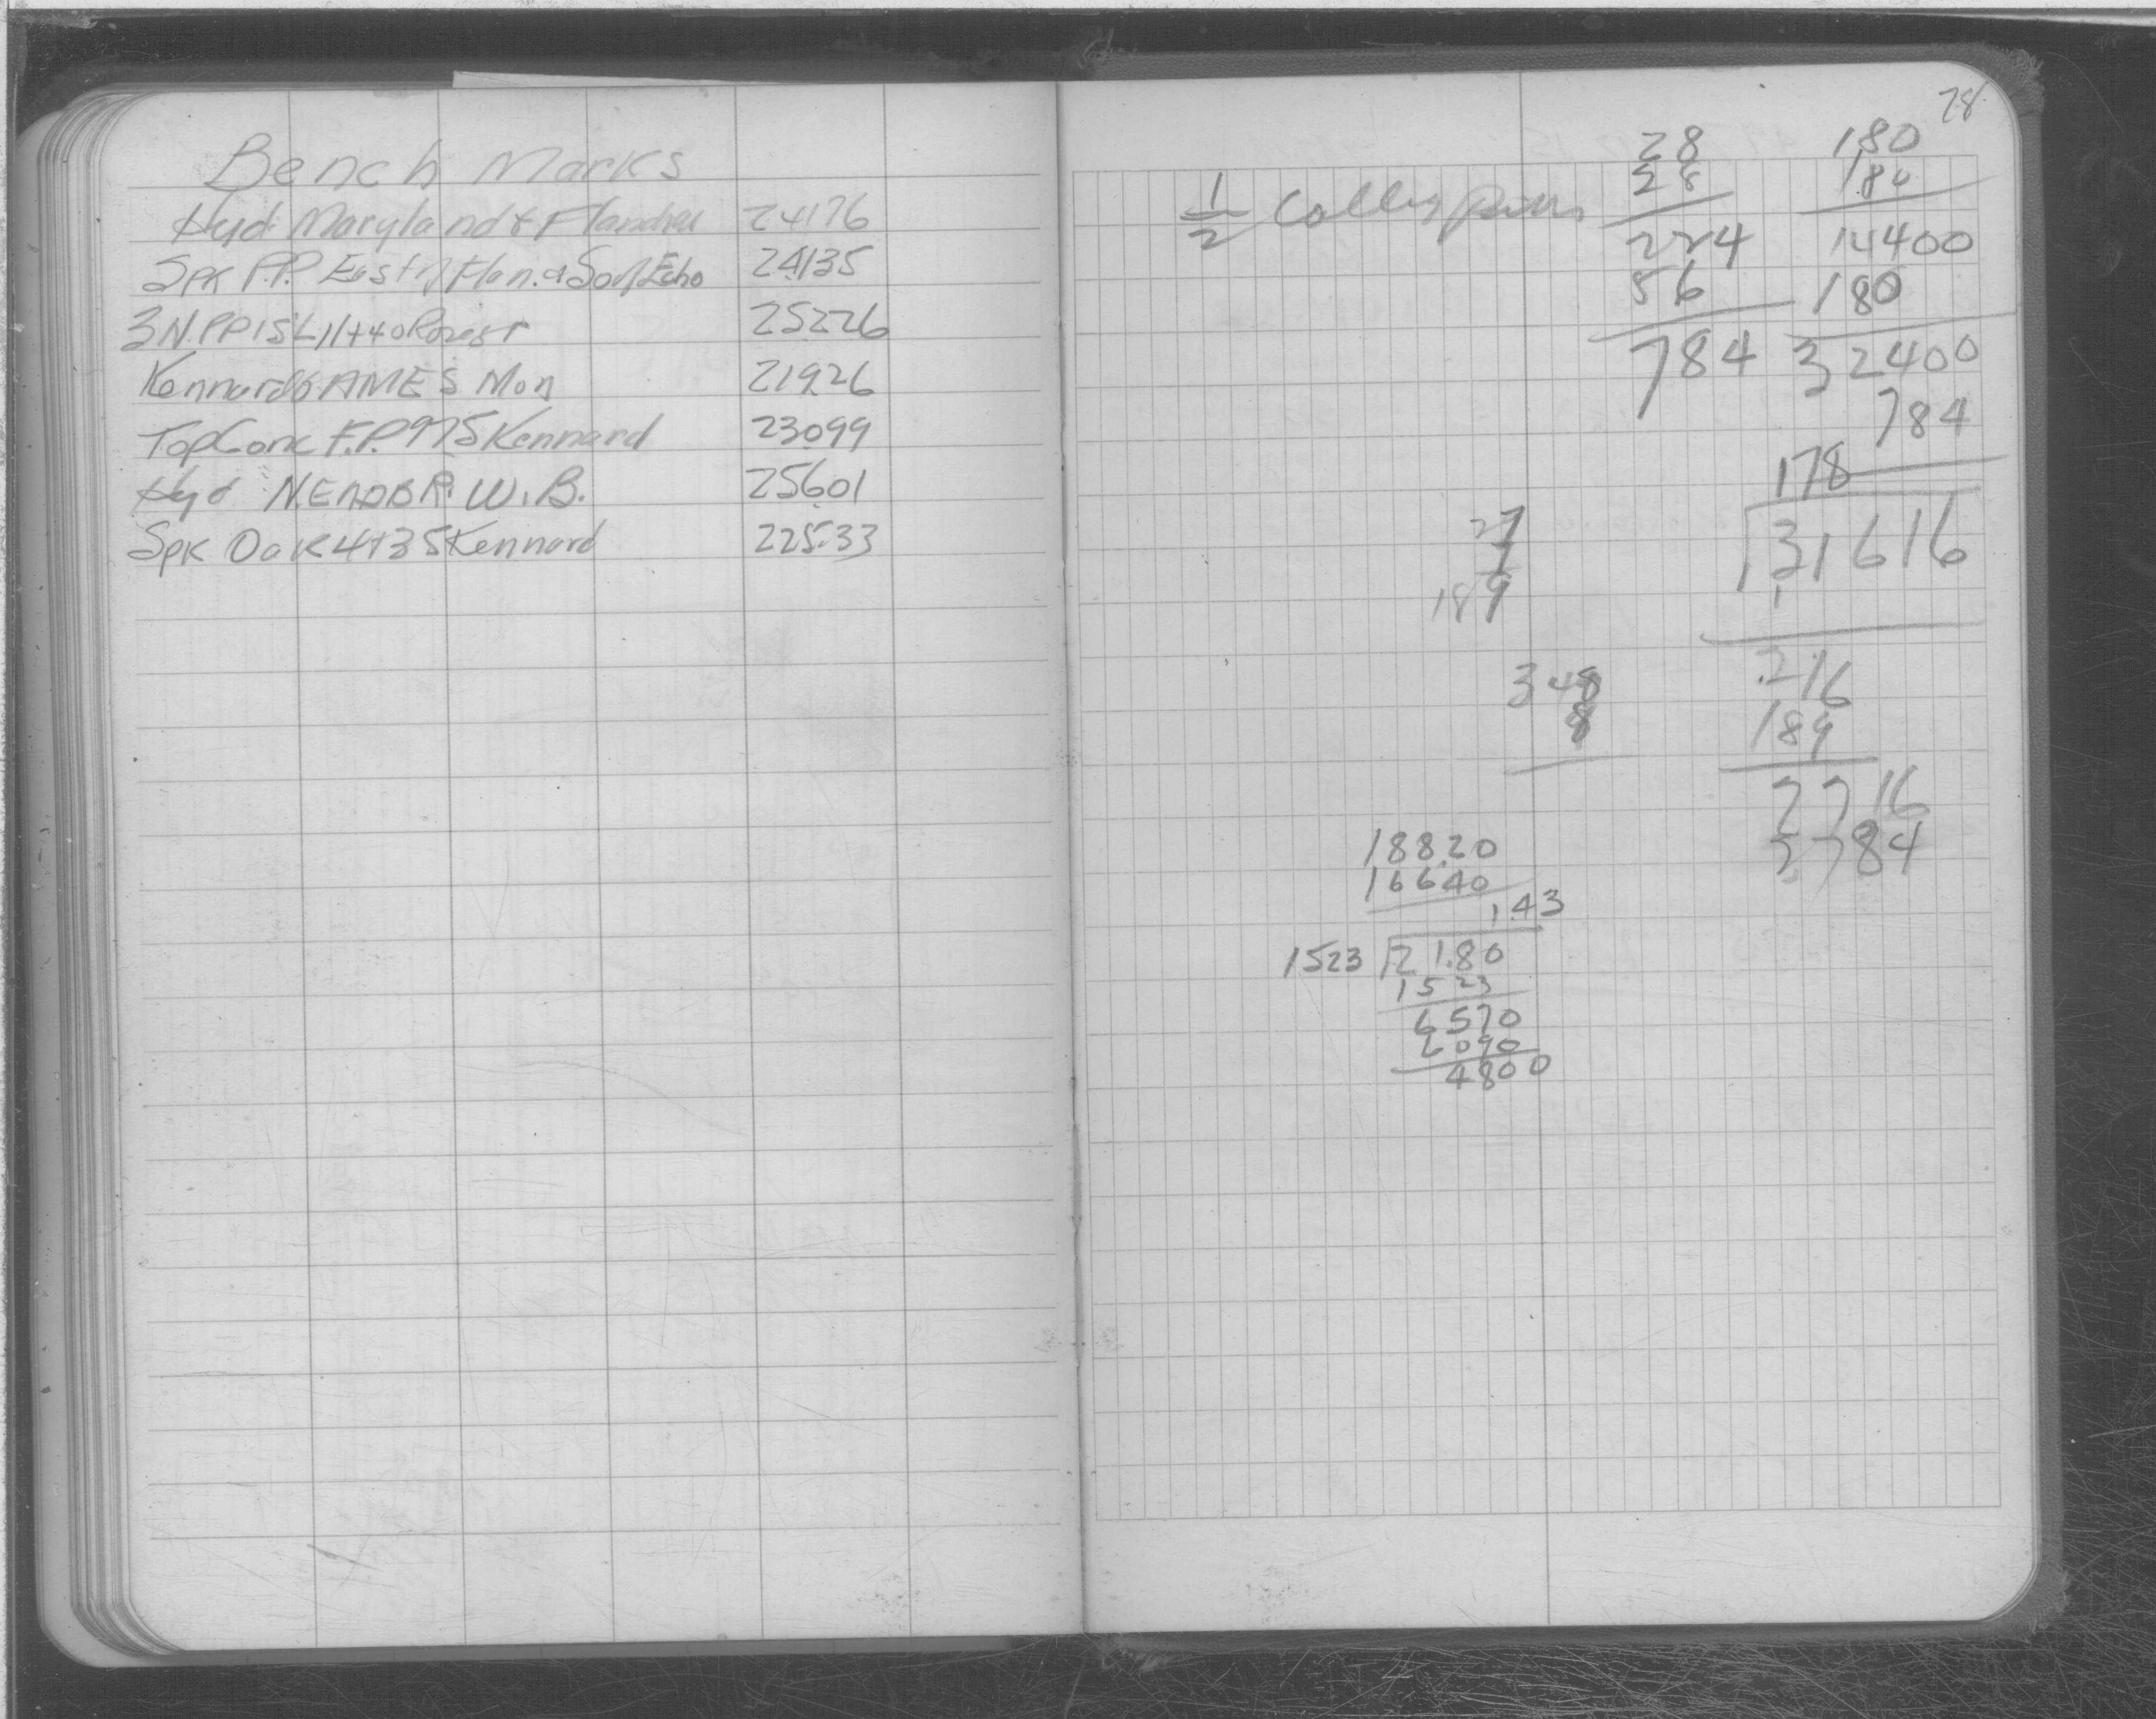 Bench Marks
Hyd Maryland & Flanders 24176
Spk P.P. East of Flan. & So of Echo 24135
3 N. PP 15' L 11+40 Forest 25226
Kennard & AMES Mon 21926
Top Conc F.P. 975 Kennard 23099
Hyd N. END BR. W. B. 25601
Spk Oak 4+35 Kennard 22533
78
1/2
28
28
224
56
784
180
180
14400
180
32400
784
178
31616
1
216
189
2716
2784
27
7
189
348
8
18820
16640
1.43
1523 21.80
1523
6570
6090
4800